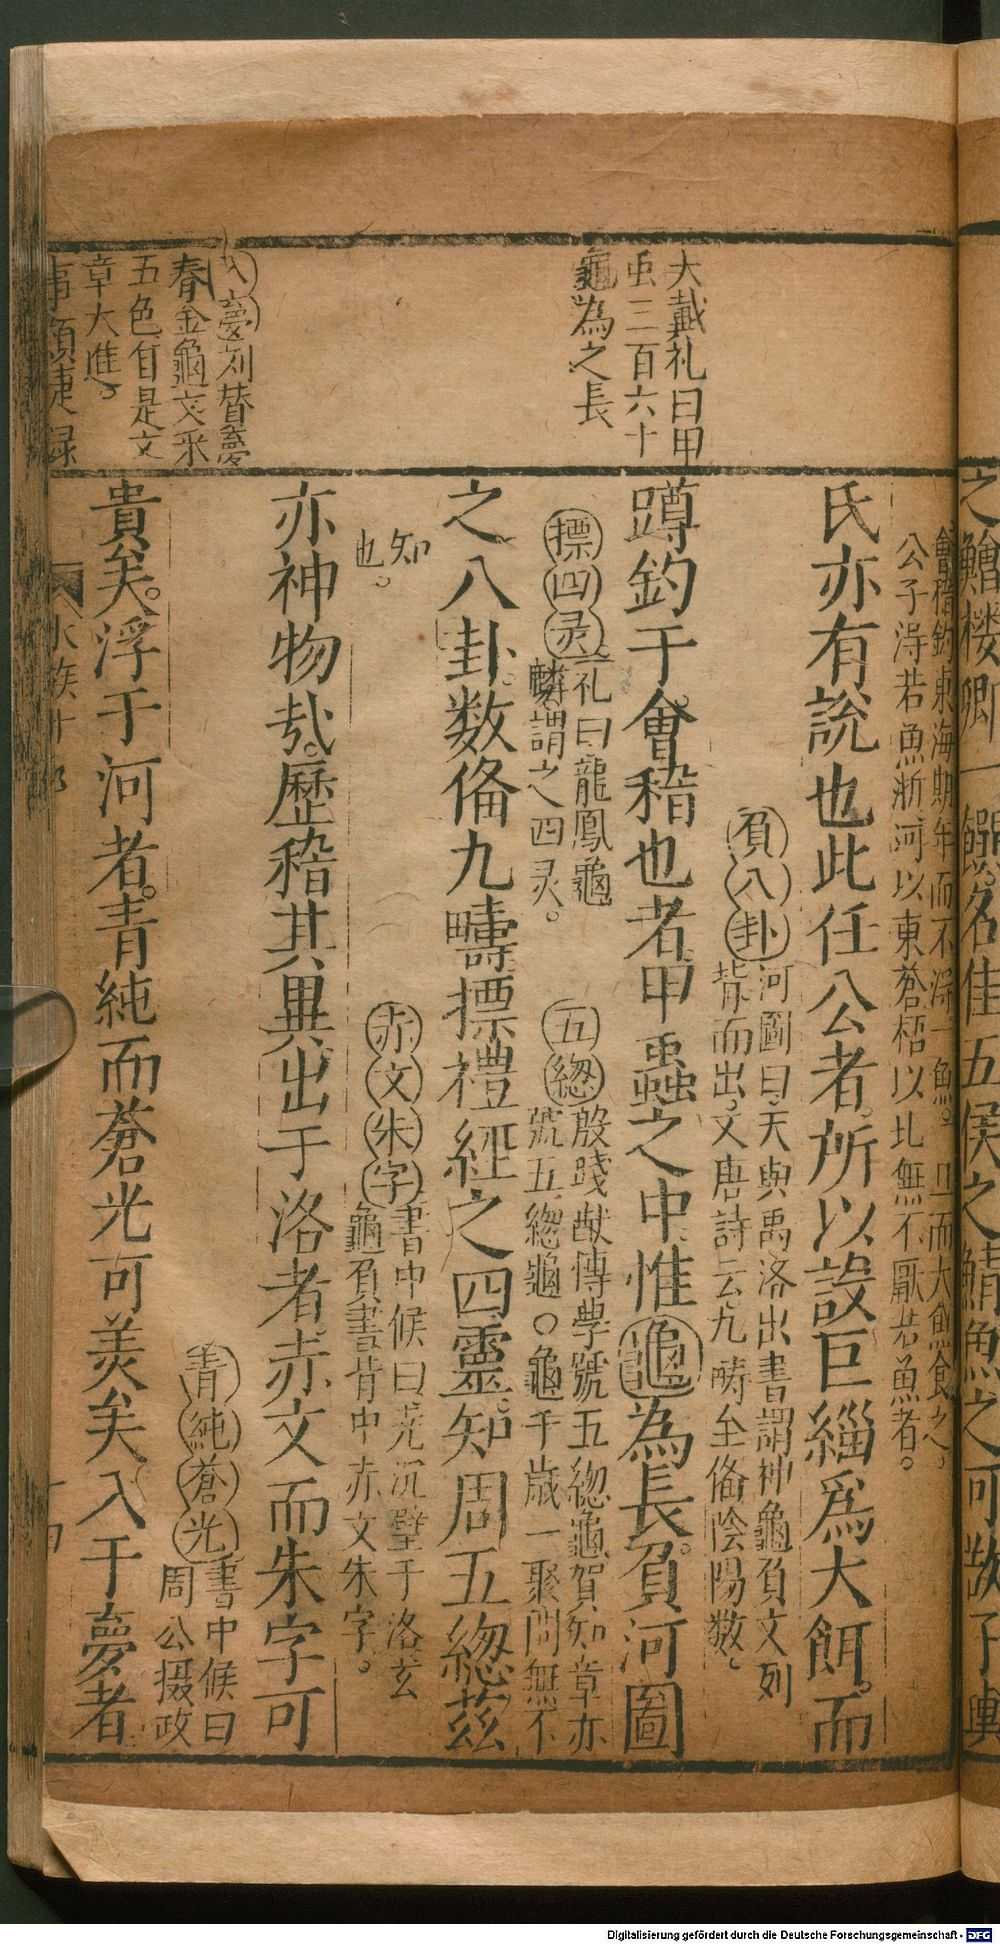 大戴礼曰甲
虫三百六十
龜為之長
夢刘賛夢
春金龜文采
五色自是文
章大進。
事類捷録
會稽釣東海期年而不得一魚。旦而大魚食之。
公子淂若魚浙河以東蒼梧以北無不厭若魚者。
氏亦有說也此任公者。所以設巨緇爲大餌。而
負八卦河圖曰天與禹洛出書謂神龜負文列
背而出。文唐詩云九疇至俻陰陽数。
蹲釣于會稽也者。甲蟲之中。惟龜為長。負河圖
摽四灵礼曰龍鳳龜
麟謂之四灵。
五緫殷踐猷傳學號五緫龜賀知章亦
號五緫龜。○龜千歳一聚問無不
之八卦。数俻九疇。摽禮經之四靈。知周五緫茲
知
也。
赤文朱字書中候曰尭沉璧于洛玄
龜負書背中赤文朱字。
亦神物㢤。歷稽其異。出于洛者。赤文而朱字可
青純蒼光書中候曰
周公摄政
貴矣。浮于河者。青純而蒼光可羙矣入于夢者
水族十
之鱠楼卿一饌。名佳五侯之鯖。魚之可
Digitalisierung gefördert durch die Deutsche Forschungsgemeinschaft - DFG